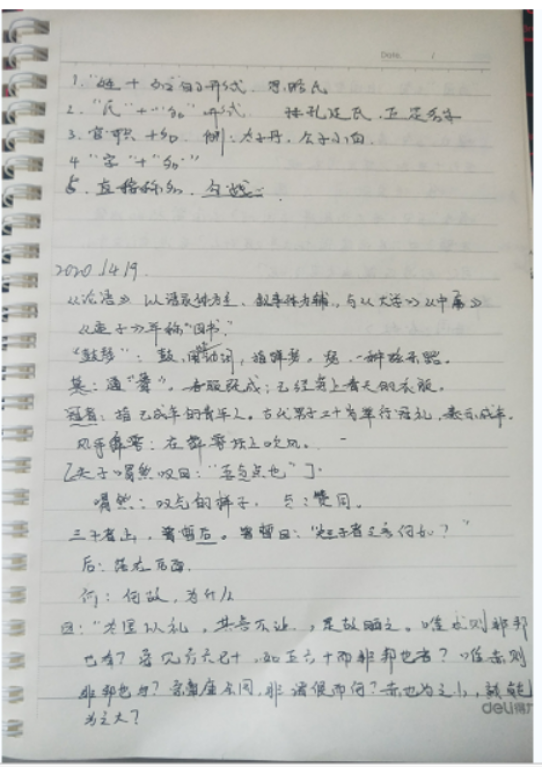 Date. /
1. "姓 + 名" 的形式.
2. "氏" + "名" 形式.
3. 官职 + 名. 例: 太子丹, 公子小白.
4 "字" + "名"
5. 直接称名.
2020.4.19.
《论语》 以语录体为主, 叙事体为辅, 与《大学》《中庸》
《孟子》并称"四书."
"鼓瑟": 鼓, 动词, 指弹瑟, 瑟, 一种弦乐器.
冠者: 指已成年的青年人. 古代男子二十岁举行冠礼, 表示成年.
风乎舞雩: 在舞雩坛上吹风.
夫子喟然叹曰: "吾与点也"
喟然: 叹气的样子. 与: 赞同.
三子者出, 曾皙后. 曾皙曰: "三子者之言何如?"
后: 落在后面.
何: 何故, 为什么
曰: "为国以礼, 其言不让, 是故哂之. 唯求则非邦
也与? 安见方六七十, 如五六十而非邦也者? 唯赤则
非邦也与? 宗庙会同, 非诸侯而何? 赤也为之小, 孰能
为之大?
deli得力